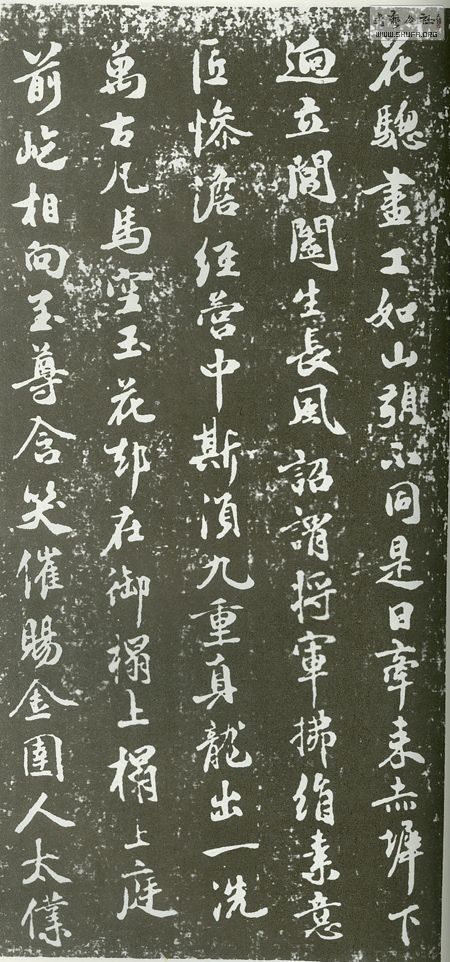 花驄畫工如山貌不同是日牽来赤墀下
迥立閶闔生長風詔謂將軍拂絹素意
匠慘澹經營中斯須九重真龍出一洗
萬古凡馬空玉花却在御榻上榻上庭
前屹相向至尊含笑催賜金圉人太僕
WWW.SHUFA.ORG